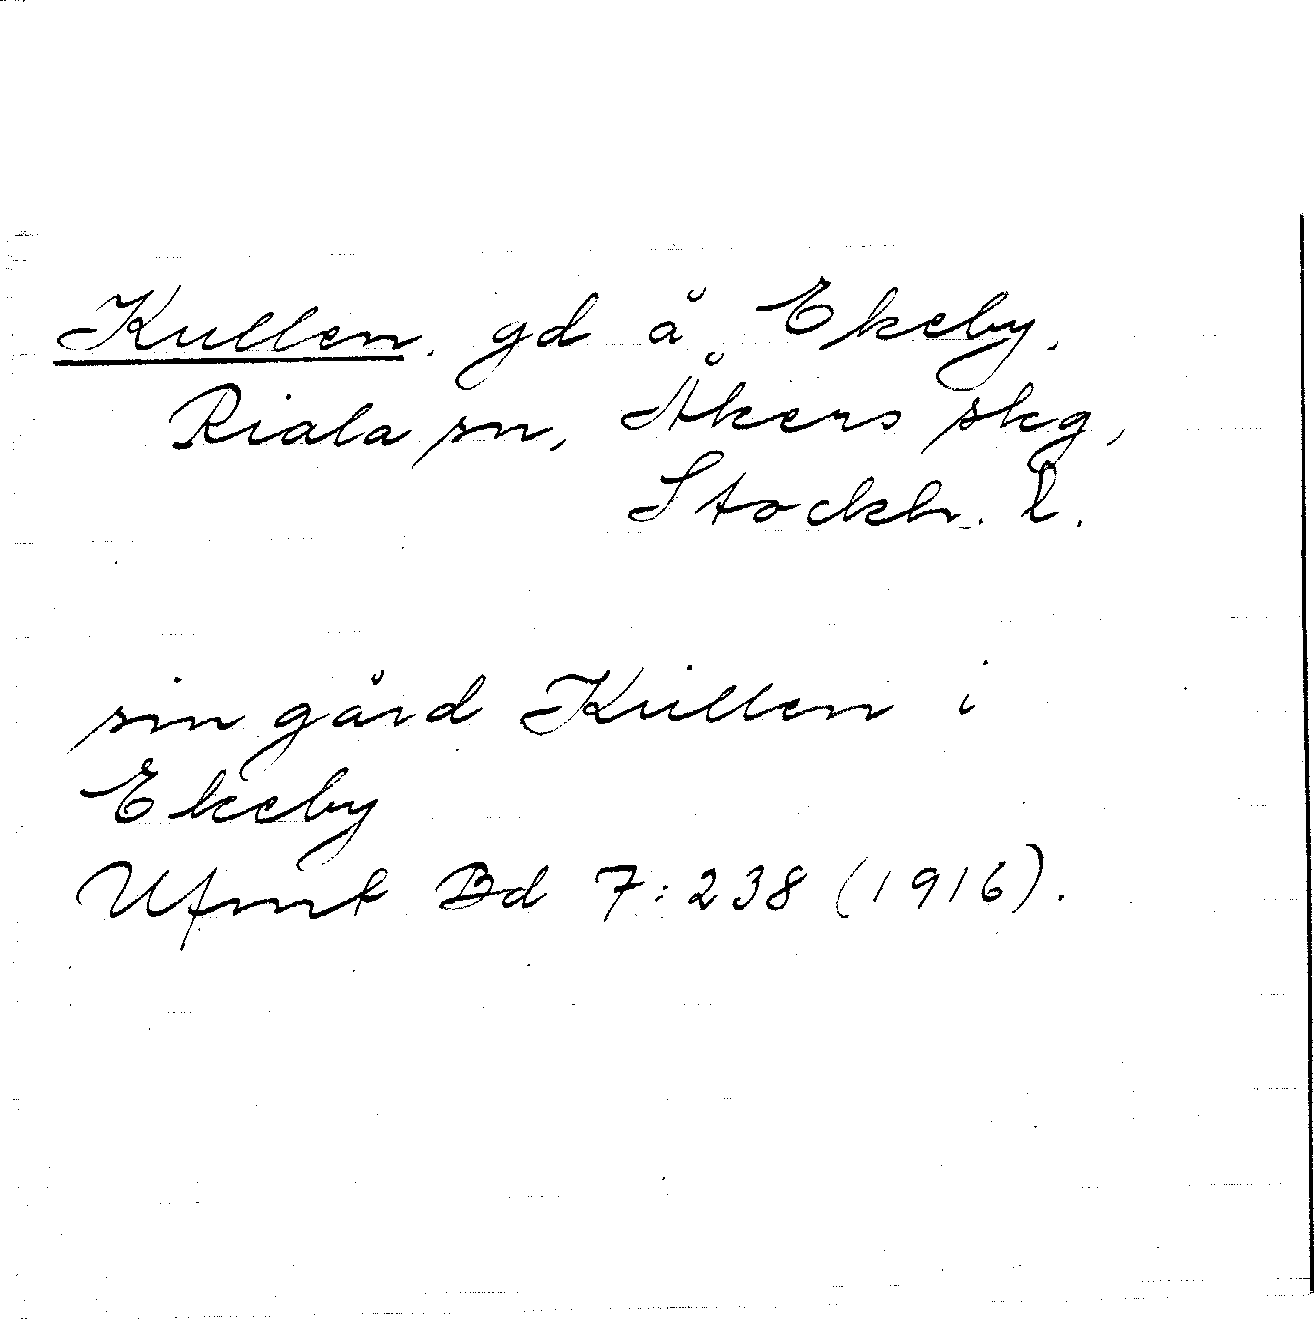 Kullen. gd å Ekeby.
Riala sn, Åkers skg,
Stockh. l.
sin gård Kullen i
Ekeby
Ufmt Bd 7:238 (1916).